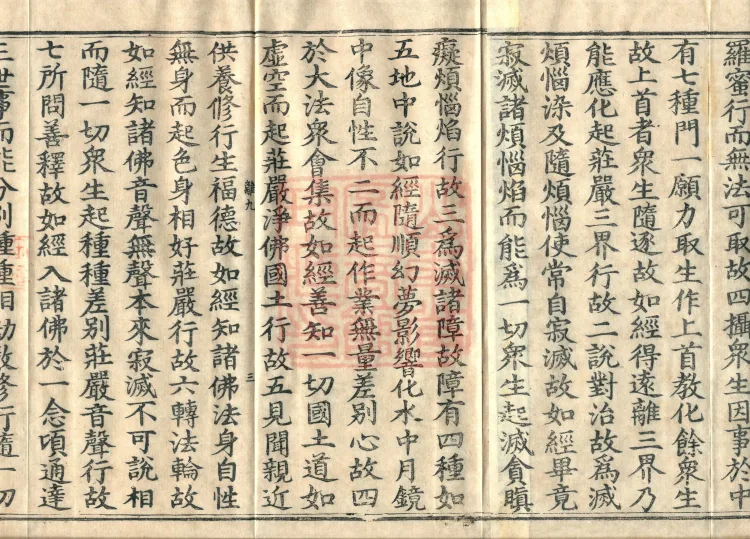 羅蜜行而無法可取故四攝衆生因事於中
有七種門一願力取生作上首教化餘衆生
故上首者衆生隨逐故如經得遠離三界乃
能應化起莊嚴三界行故二說對治故爲滅
煩惱染及隨煩惱使常自寂滅故如經畢竟
寂滅諸煩惱焰而能爲一切衆生起滅貪瞋
癡煩惱焰行故三爲滅諸障故障有四種如
五地中說如經隨順幻夢影響化水中月鏡
中像自性不二而起作業無量差別心故四
於大法衆會集故如經善知一切國土道如
虛空而起莊嚴淨佛國土行故五見聞親近
供養修行生福德故如經知諸佛法身自性
離九
三
無身而起色身相好莊嚴行故六轉法輪故
如經知諸佛音聲無聲本來寂滅不可說相
而隨一切衆生起種種差別莊嚴音聲行故
七所問善釋故如經入諸佛於一念頃通達
三世事而能分別種種相劫數修行隨一切